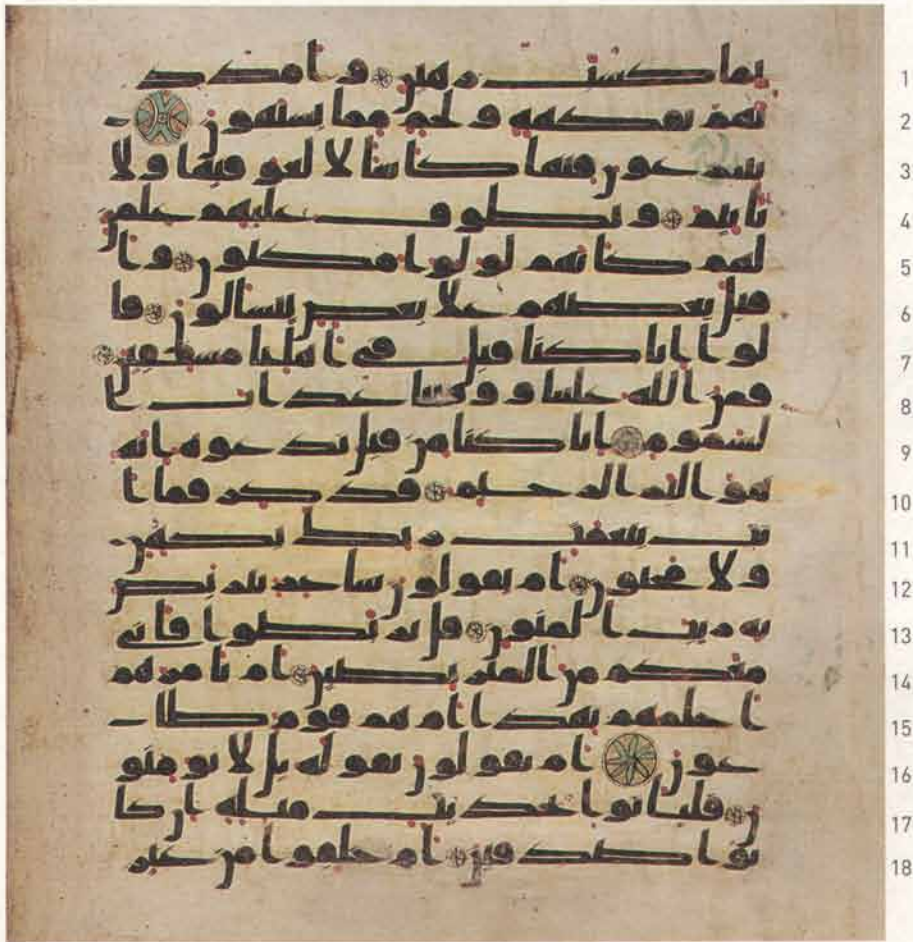 بما كسب رهين وامدد 1
نهم بفكهه ولحم مما يشتهون 2
يتنزعون فيها كاسا لا لغو فيها ولا 3
تاثيم ويطوف عليهم غلمن 4
لهم كانهم لولو مكنون وا 5
قبل بعضهم على بعض يتسالون قا 6
لوا انا كنا قبل في اهلنا مشفقين 7
فمن الله علينا ووقينا عذاب ا 8
لسموم انا كنا من قبل ندعوه انه 9
هو البر الرحيم فذكر فما ا 10
نت بنعمت ربك بكهن 11
ولا مجنون ام يقولون شاعر نتربص 12
به ريب المنون قل تربصوا فاني 13
معكم من المتربصين ام تامرهم 14
احلمهم بهذا ام هم قوم طا 15
غون ام يقولون تقوله بل لا يومنو 16
ن فلياتوا بحديث مثله ان كا 17
نوا صدقين ام خلقوا من غير 18